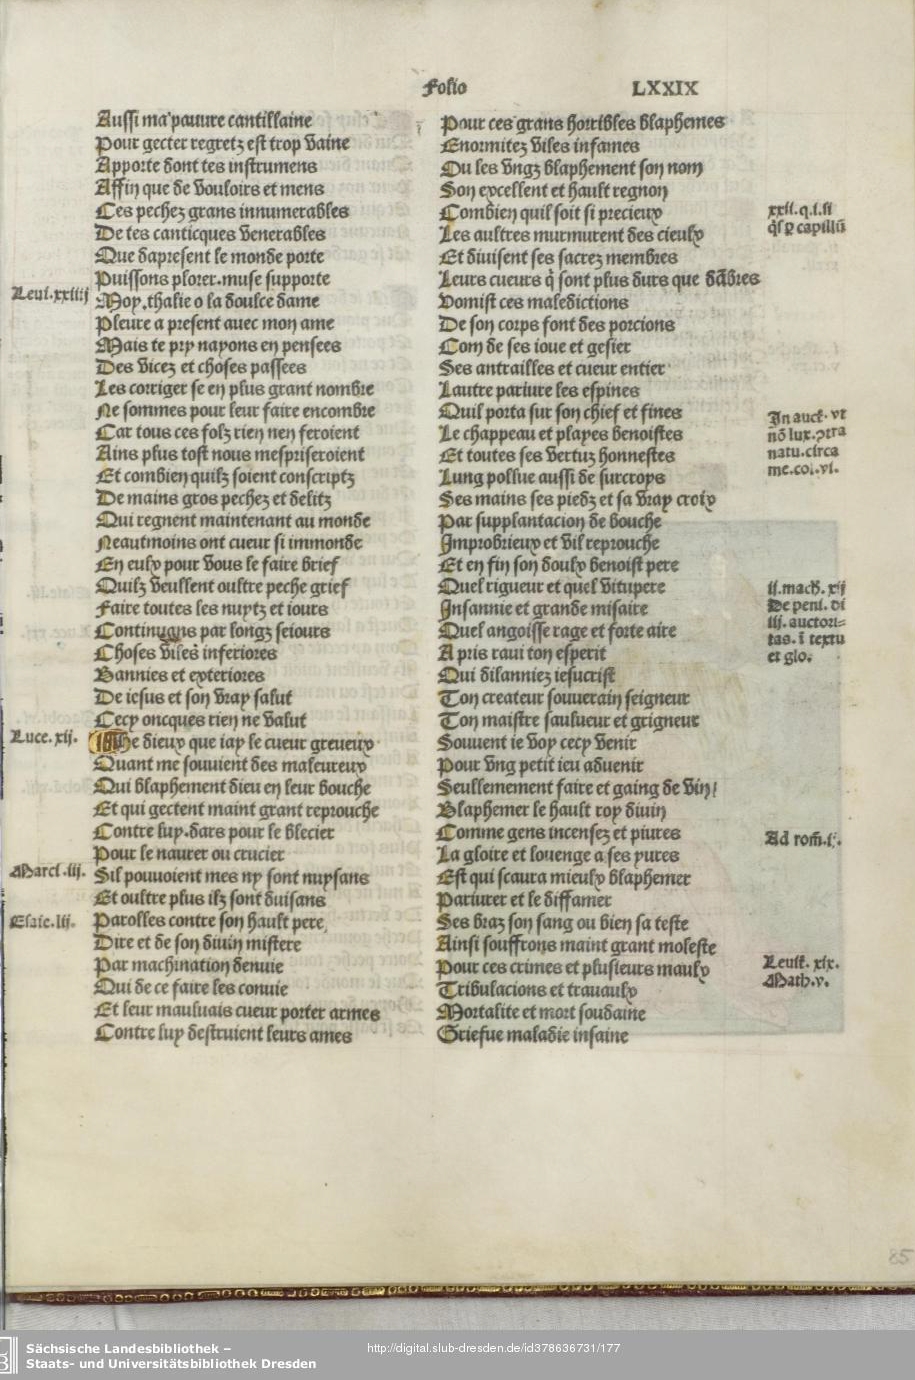 Folio LXXIX
Aussi ma pauure cantillaine
Pour gecter regretz est trop vaine
Apporte dont tes instrumens
Affin que de vouloirs et mens
Ces pechez grans innumerables
De tes canticques venerables
Que dapresent le monde porte
Puissons plorer. muse supporte
Leui. xxiiij
Moy. thalie o la doulce dame
Pleure a present auec mon ame
Mais te pry nayons en pensees
Des vicez et choses passees
Les corriger se en plus grant nombre
Ne sommes pour leur faire encombre
Car tous ces folz rien nen feroient
Ains plus tost nous mespriseroient
Et combien quilz soient conscriptz
De mains gros pechez et delitz
Qui regnent maintenant au monde
Neautmoins ont cueur si immonde
En eulx pour vous le faire brief
Quilz veullent oultre peche grief
Faire toutes les nuytz et iours
Continuans par longz seiours
Choses viles inferiores
Bannies et exteriores
De iesus et son vray salut
Cecy oncques rien ne valut
Luce. xij.
He dieux que iay le cueur greueux
Quant me souuient des maleureux
Qui blaphement dieu en leur bouche
Et qui gectent maint grant reprouche
Contre luy. dars pour le blecier
Pour le naurer ou crucier
Marci. iij.
Sil pouuoient mes ny sont nuysans
Et oultre plus ilz sont duisans
Esaie. lii.
Parolles contre son hault pere
Dire et de son diuin mistere
Par machination denuie
Qui de ce faire les conuie
Et leur mauluais cueur porter armes
Contre luy destruient leurs ames
Pour ces grans horribles blaphemes
Enormitez viles infames
Ou les vngz blaphement son nom
Son excellent et hault regnon
Combien quil soit si precieux
xxii. q. i. si
q̄s ꝑ capillū
Les aultres murmurent des cieulx
Et diuisent ses sacrez membres
Leurs cueurs q̄ sont plus durs que dābres
Vomist ces maledictions
De son corps font des porcions
Com de ses ioue et gesier
Ses antrailles et cueur entier
Lautre pariure les espines
Quil porta sur son chief et fines
In auct. vt
nō lux. ꝯtra
natu. circa
me. col. vi.
Le chappeau et playes benoistes
Et toutes ses vertuz honnestes
Lung pollue aussi de surcroys
Ses mains ses piedz et sa vray croix
Par supplantacion de bouche
Improbrieux et vil reprouche
Et en fin son doulx benoist pere
Quel rigueur et quel vitupere
ii. mach. xij
De peni. di
iij. auctori=
tas. ī textu
et glo.
Insannie et grande misaire
Quel angoisse rage et forte aire
A pris raui ton esperit
Qui dilanniez iesucrist
Ton createur souuerain seigneur
Ton maistre saulueur et grigneur
Souuent ie voy cecy venir
Pour vng petit ieu aduenir
Seullemement faire et gaing de vin/
Blaphemer le hault roy diuin
Comme gens incensez et piures
Ad rom̄. i.
La gloire et louenge a ses yures
Est qui scaura mieulx blaphemer
Pariurer et le diffamer
Ses braz son sang ou bien sa teste
Ainsi souffrons maint grant moleste
Pour ces crimes et plusieurs maulx
Leuit. xix.
Math. v.
Tribulacions et trauaulx
Mortalite et mort soudaine
Griefue maladie insaine
85
Sächsische Landesbibliothek –
Staats- und Universitätsbibliothek Dresden
http://digital.slub-dresden.de/id378636731/177